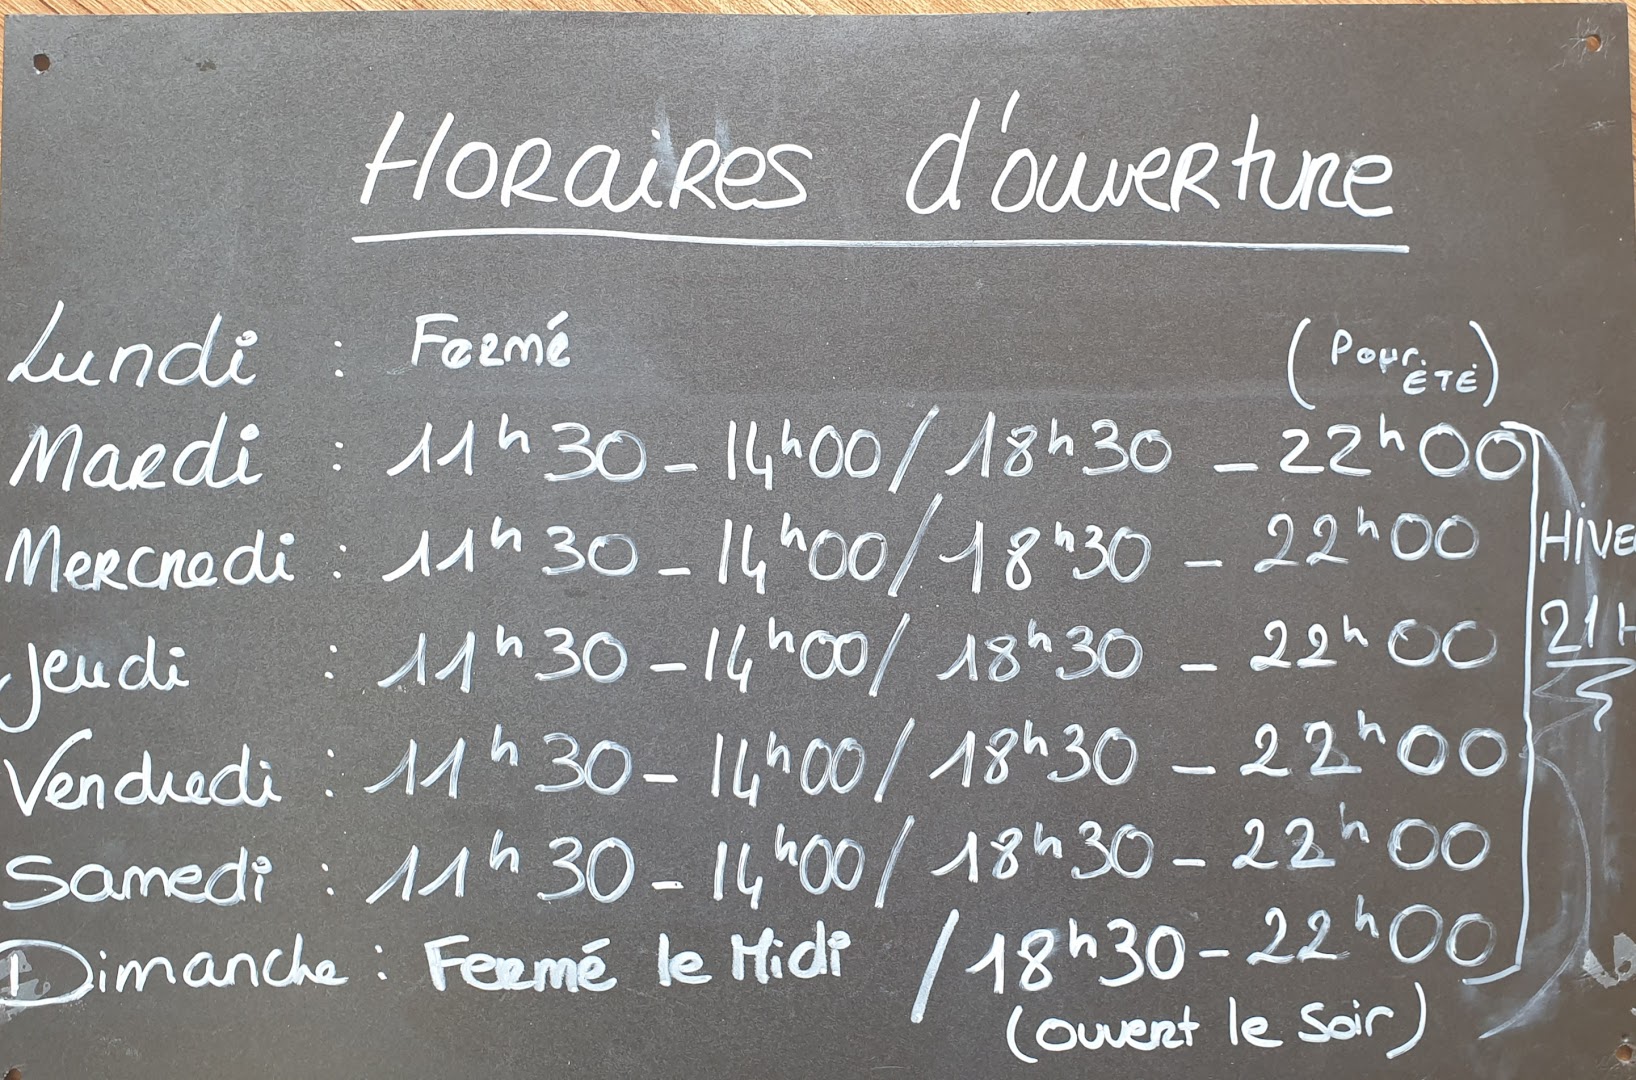 HORAIRES d'ouverture
Lundi : Fermé (Pour ÉTÉ)
Mardi : 11h30 - 14h00 / 18h30 - 22h00
Mercredi : 11h30 - 14h00 / 18h30 - 22h00
HIVE
Jeudi : 11h30 - 14h00 / 18h30 - 22h00
21H
Vendredi : 11h30 - 14h00 / 18h30 - 22h00
Samedi : 11h30 - 14h00 / 18h30 - 22h00
Dimanche : Fermé le Midi / 18h30 - 22h00
(ouvert le Soir)